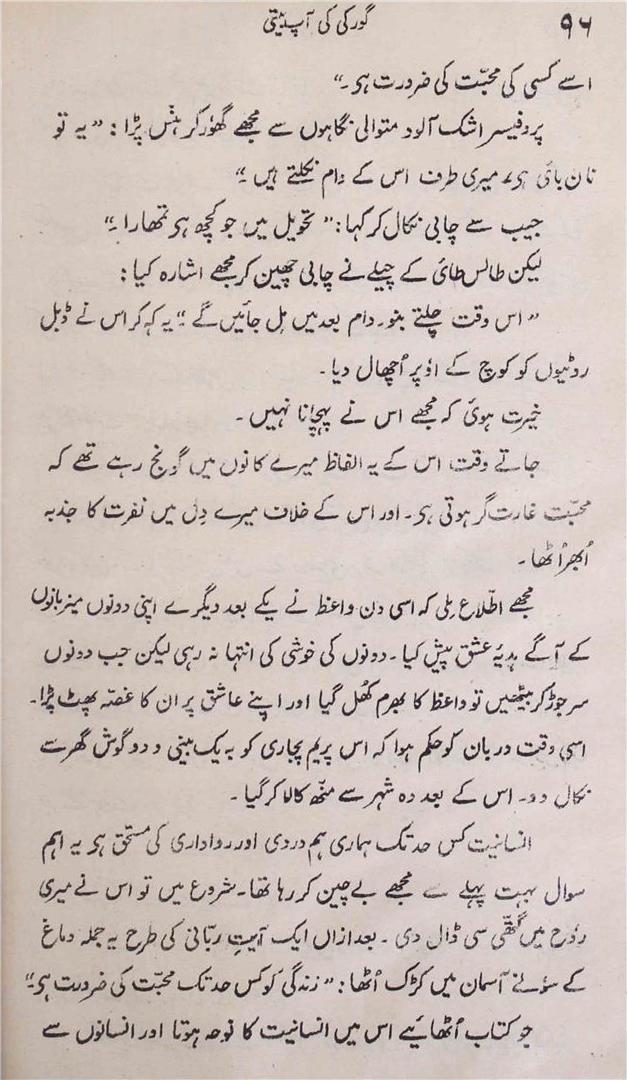 ۹۶
گورکی کی آپ بیتی
اسے کسی کی محبّت کی ضرورت ہی۔“
پروفیسر اشک آلود متوالی نگاہوں سے مجھے گھؤر کر ہنس پڑا : ”یہ تو
نان بائی ہی، میری طرف اس کے دام نکلتے ہیں ۔“
جیب سے چابی نکال کر کہا: ”تحویل میں جو کچھ ہی تمھارا ۔“
لیکن طالسطائی کے چیلے نے چابی چھین کر مجھے اشارہ کیا :
”اس وقت چلتے بنو۔ دام بعد میں مل جائیں گے ۔“ یہ کہ کر اس نے ڈبل
روٹیوں کو کوچ کے اؤپر اُچھال دیا ۔
حیرت ہوئی کہ مجھے اس نے پہچانا نہیں ۔
جاتے وقت اس کے یہ الفاظ میرے کانوں میں گونج رہے تھے کہ
محبّت غارت گر ہوتی ہی۔ اور اس کے خلاف میرے دِل میں نفرت کا جذبہ
اُبھر اُٹھا ۔
مجھے اطّلاع مِلی کہ اسی دن واعظ نے یکے بعد دیگرے اپنی دونوں میزبانوں
کے آگے ہدیۂ عشق پیش کیا ۔ دونوں کی خوشی کی انتہا نہ رہی لیکن جب دونوں
سر جوڑ کر بیٹھیں تو واعظ کا بھرم کھُل گیا اور اپنے عاشق پر ان کا غصّہ پھٹ پڑا۔
اسی وقت دربان کو حکم ہوا کہ اس پریم پجاری کو بہ یک بینی و دو گوش گھر سے
نکال دو۔ اس کے بعد وہ شہر سے منّھ کالا کر گیا ۔
انسانیت کس حد تک ہماری ہم دردی اور رواداری کی مستحق ہی یہ اہم
سوال بہت پہلے سے مجھے بے چین کر رہا تھا۔ شروع میں تو اس نے میری
رؤح میں گتھّی سی ڈال دی ۔ بعد ازاں ایک آیتِ ربّانی کی طرح یہ جملہ دماغ
کے سوٗنے آسمان میں کڑک اُٹھا : ”زندگی کو کس حد تک محبّت کی ضرورت ہی۔“
جو کتاب اُٹھایئے اس میں انسانیت کا نوحہ ہوتا اور انسانوں سے